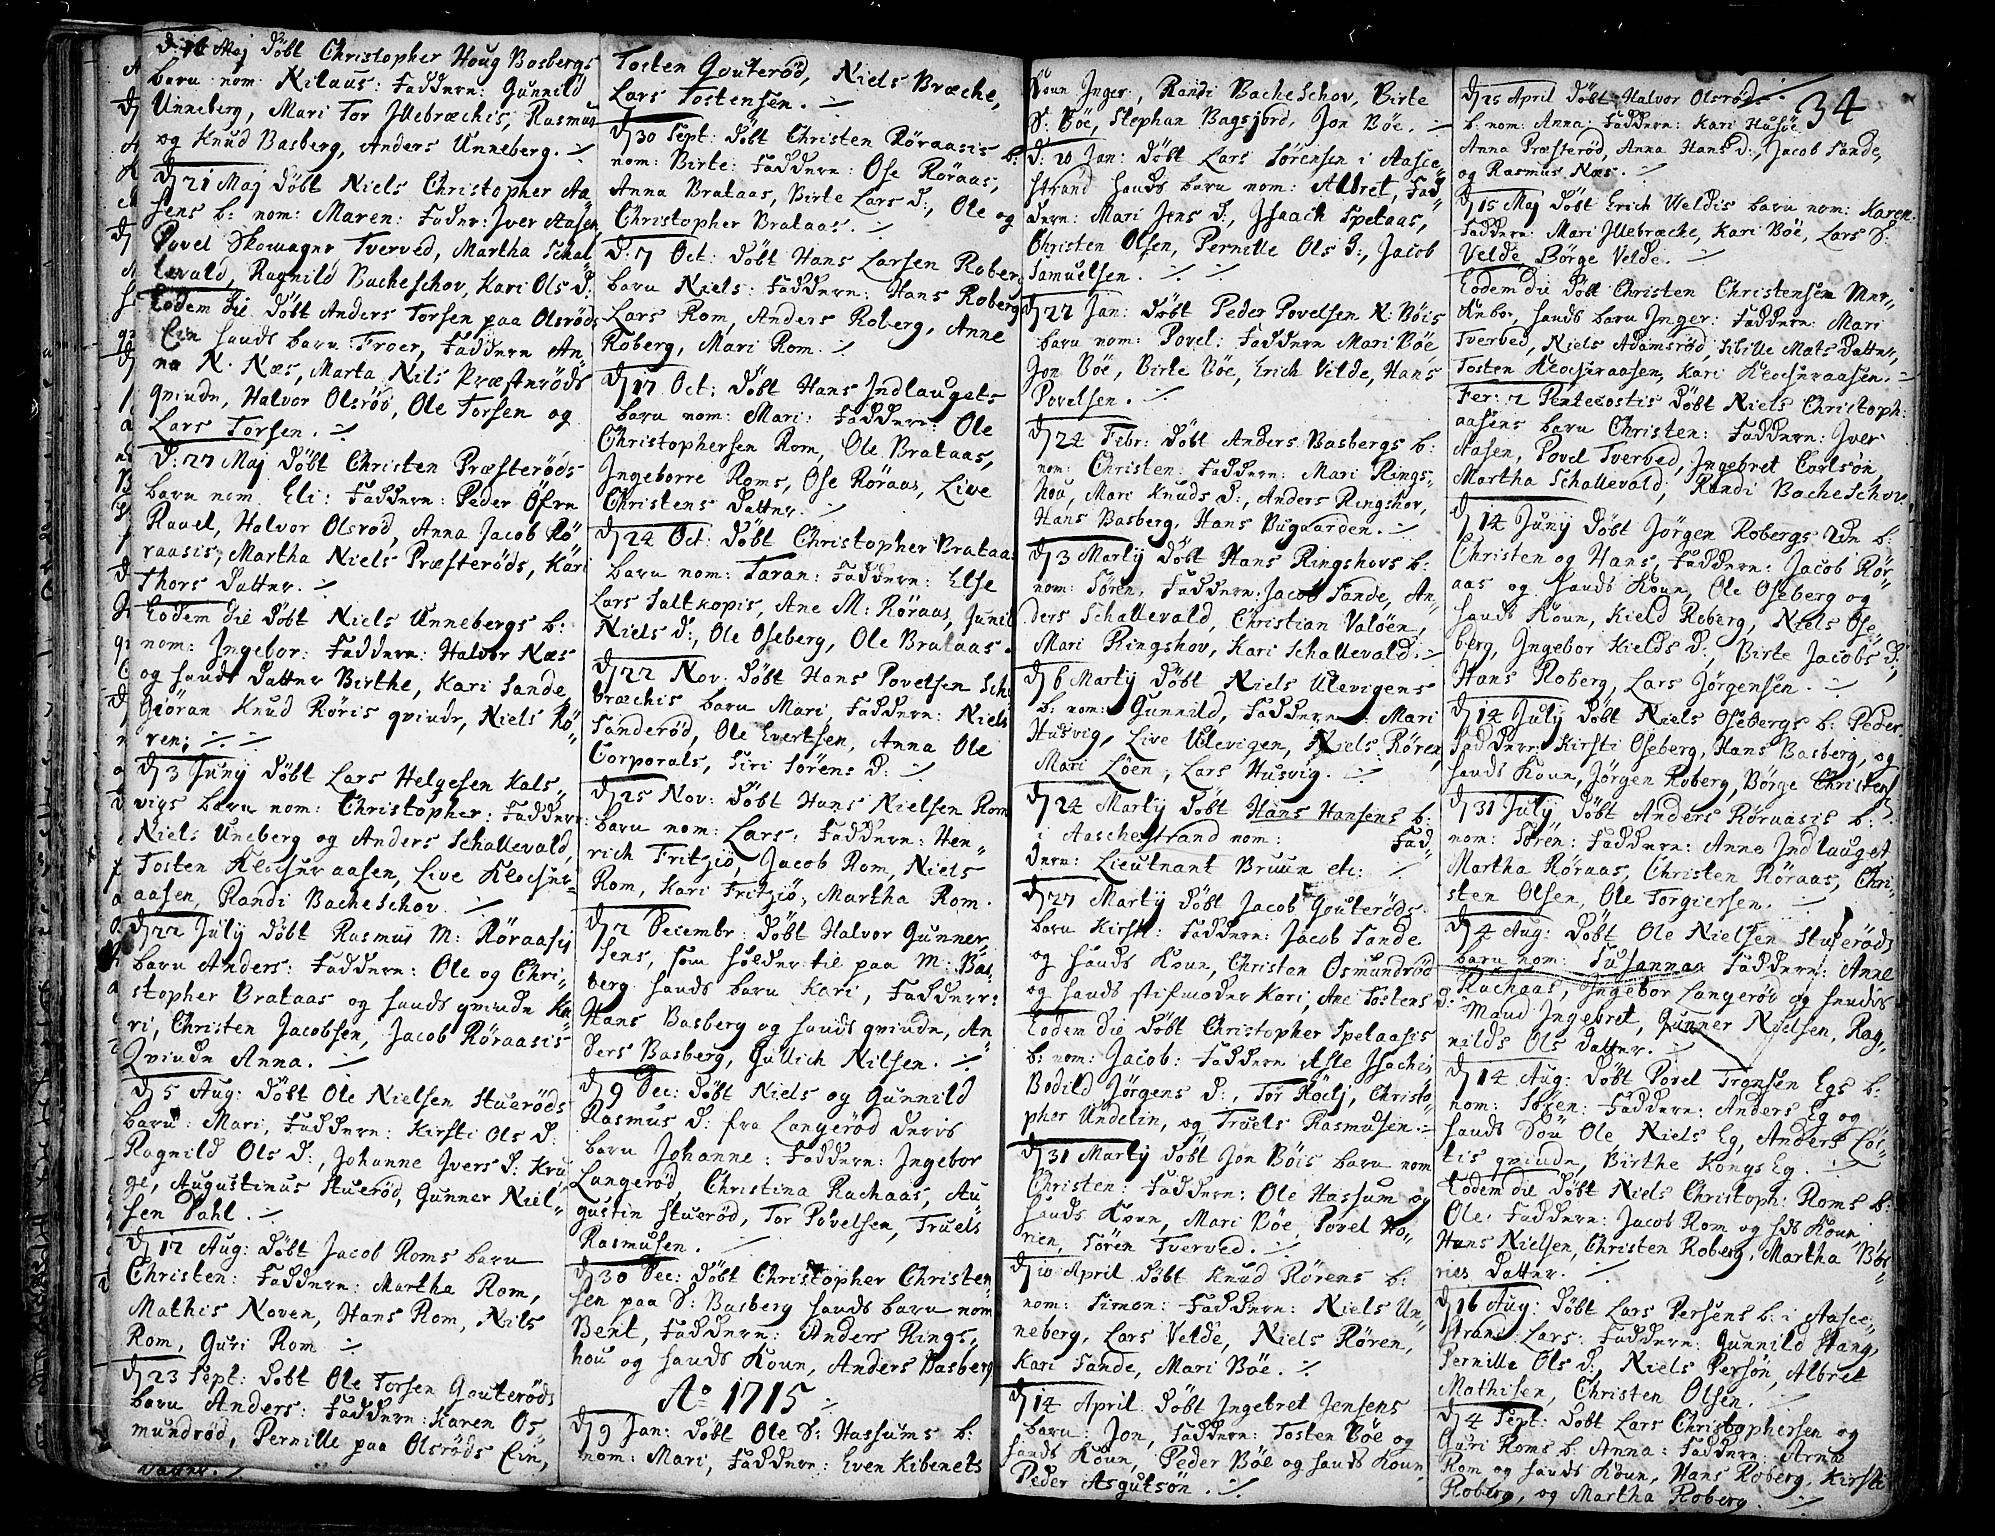 d: 16 Maj döbt Christopher Houg Basbergs
barn nom: Nilaus: Faddere: Gunnild
Unneberg, Mari Tor Illebræchis, Rasmus
og Knud Basberg, Anders Unneberg. ./.
d 21 Maj döbt Niels Christopher Aa-
sens b: nom: Maren: Fader: Iver Aasen,
Povel Skomager Tverved, Martha Schal-
levald, Ragnild Bacheschov, Kari Ols d:
Eodem die döbt Anders Torsen paa Olsröds
Eie hands barn Troer, Faddere An-
na N. Næs, Marta Nils Præsteröds
qvinde, Halvor Olsröd, Ole Torsen og
Lars Torsen. ./.
d: 27 Maj döbt Christen Præsteröds
barn nom Eli: Faddere: Peder Öfre
Ravel, Halvor Olsrod, Anna Jacob Rö-
raasis, Martha Niels Præsteröds, Kari
Thors datter. ./.
Eodem die döbt Niels Unnebergs b:
nom: Ingebor: Faddere: Halvor Næs
og hands datter Birthe, Kari Sande,
Giöran Knud Röris qvinde, Niels Rö-
ren; ./.
d 3 Junij döbt Lars Helgesen Kals-
vigs barn nom: Christopher: Faddere:
Niels Uneberg og Anders Schallevald,
Tosten Klocheraasen, Live Klocher-
aasen, Randi Bacheschov ./.
d 22 July döbt Rasmus M: Röraasis
barn Anders: Faddere: Ole og Chri-
stopher Brataas og hands qvinde Ka-
ri, Christen Jacobsen, Jacob Röraasis
Qvinde Anna. ./.
d 5 Aug: döbt Ole Nielsen Stueröds
barn: Mari, Faddere: Kirsti Ols d:
Ragnild Ols d:, Johanne Ivers d: Kru-
ge, Augustinus Stueröd, Gunner Niel-
sen Dahl. ./.
d 12 Aug: döbt Jacob Roms barn
Christen: Faddere: Martha Rom,
Mathis Noven, Hans Rom, Nils
Rom, Guri Rom ./.
d 23 Sept: döbt Ole Torsen Gouteröds
barn Anders: Faddere: Karen Os-
mundröd, Pernille paa Olsröds Eie,

Tosten Gouteröd, Niels Bræche,
Lars Tostensen. ./.
d 30 Sept: döbt Christen Röraasis b:
nom: Birte: Faddere: Ose Röraas,
Anna Brataas, Birte Lars d:, Ole og
Christopher Brataas. ./.
d: 7 Oct: döbt Hans Larsen Roberg
barn Niels: Faddere: Hans Roberg
Lars Rom, Anders Roberg, Anne
Roberg, Mari Rom. ./.
d 17 Oct: döbt Hans Indlaugets
barn nom: Mari: Faddere: Ole
Christophersen Rom, Ole Brataas,
Ingeborre Roms, Ose Röraas, Live
Christens datter. ./.
d 24 Oct: döbt Christopher Brataas
barn nom: Taran: Faddere: Else
Lars Saltkopis, Ane M: Röraas, Junil
Niels d:, Ole Oseberg, Ole Brataas.
d 22 Nov: döbt Hans Povelsen Ill-
bræchis barn Mari, Faddere: Niels
Sanderöd, Ole Evertsen, Anna Ole
Corporals, Siri Sörens d: ./.
d 25 Nov: döbt Hans Nielsen Rom
barn nom: Lars: Faddere: Hen-
rich Fritziö, Jacob Rom, Niels
Rom, Kari Fritziö, Martha Rom.
d 2 Decembr: döbt Halvor Gunner-
sens, som holder til paa M: Bas-
berg hands barn Kari, Faddere:
Hans Basberg og hands qvinde, An-
ders Basberg, Gullich Nilsen. ./.
d 9 Dec: döbt Niels og Gunnild
Rasmus d: fra Langeröd deris
barn Johanne: Faddere: Ingebor
Langeröd, Christina Rachaas, Au-
gustin Stueröd, Tor Povelsen, Truels
Rasmusen. ./.
d 30 Dec: döbt Christopher Christen-
sen paa S: Basberg hands barn nom
Bent, Faddere: Anders Rings-
hou og hands Kone, Anders Basberg
Ao 1715 ./.
d 9 Jan: döbt Ole S: Hassums b:
nom: Mari, Faddere: Even Kibenets

Kone Inger, Randi Bacheschov, Birte
S: Böe, Stephan Bagsjord, Jon Böe. ./.
d: 20 Jan: döbt Lars Sörensen i Aasge-
strand hands barn nom: Albret, Fad-
dere: Mari Jens d:, Isaach Spetaas,
Christen Olsen, Pernille Ols d:, Jacob
Samuelsen. ./. ./.
d 27 Jan: döbt Peder Povelsen N: Böis
barn nom: Povel: Faddere Mari Böe
Jon Böe, Birte Böe, Erich Vilde, Hans
Povelsen. ./.
d 24 Febr: döbt Anders Basbergs b:
nom: Christen: Faddere: Mari Rings-
hou, Mari Knuds d:, Anders Ringshov,
Hans Basberg, Hans Bugaarden. ./.
d 3 Martij döbt Hans Ringshovs b:
nom: Sören, Faddere: Jacob Sande, An-
ders Schallevald, Christian Valöen,
Mari Ringshov, Kari Schallevald. ./.
d 6 Martij döbt Niels Ulevigens
b: nom: Gunnild, Faddere: Mari
Husvig, Live Ulevigen, Niels Rören,
Mari Löen, Lars Husvig. ./.
d 24 Martij döbt Hans Hansens b:
i Aaschestrand nom: Fad-
dere: Lieutnant Bruun etc: ./.
d 27 Martij döbt Jacob Gouteröds
barn Kirsti: Faddere: Jacob Sande
og hands Kone, Christen Osmundröd
og hands stifmoder Kari, Ane Tostens d:
Eodem die döbt Christopher Spetaasis
b: nom: Jacob: Faddere Asle Isachis
Bodild Jörgens d:, Tor Höelj, Christo-
pher Undelin, og Truels Rasmusen. ./.
d 31 Martij döbt Jon Böis barn nom
Christen: Faddere: Ole Hassum og
hands Kone, Mari Böe, Povel No-
rien, Sören Tverved. ./.
d 10 April döbt Knud Rörens b:
nom: Simon: Faddere: Niels Un-
neberg, Lars Velde, Niels Rören,
Kari Sande, Mari Böe. ./.
d 14 April döbt Ingebret Jensens
barn: Jon, Faddere: Tosten Böe og
hands Kone, Peder Böe og hands Kone,
Peder Asgutsön. ./.

34
d 25 April döbt Halvor Olsröds
b: nom: Anna: Faddere: Kari Husöe,
Anna Præsteröd, Anna Hans d:, Jacob Sande,
og Rasmus Næs. ./.
d 15 Maj döbt Erich Veldis barn nom: Karen
Faddere: Mari Illebræche, Kari Böe, Lars S:
Velde, Börge Velde. ./.
Eodem die döbt Christen Christensen Mer-
hands barn Inger: Faddere: Mari
Tverved, Niels Adamsröd, Sibille Mats datter,
Tosten Klocheraasen, Kari Klocheraasen. ./.
Fer: 2 Pentecostis döbt Niels Christoph:
aasens barn Christen: Faddere: Iver
Aasen, Povel Tverved, Ingebret Carlsön,
Martha Schallevald, Randi Bacheschov
d 14 Junij döbt Jörgen Robergs 2de b:
Christen og Hans, Faddere: Jacob Rör-
aas og hands Kone, Ole Oseberg og
hands Kone, Kield Roberg, Niels Ose-
berg, Ingebor Kields d:, Birte Jacobs d:,
Hans Roberg, Lars Jörgensen. ./.
d 14 July döbt Niels Osebergs b: Peder,
Faddere: Kirsti Oseberg, Hans Basberg, og
hands Kone, Jörgen Roberg, Börge Christens:
d 31 July döbt Anders Röraasis b:
nom: Sören: Faddere: Anne Indlauget
Martha Röraas, Christen Röraas, Chri-
sten Olsen, Ole Torgiersen. ./.
d 4 Aug: döbt Ole Nielsen Stueröds
barn nom: Susanna: Faddere: Anne
Rachaas, Ingebor Langeröd og hendis
Mand Ingebret, Gunner Nielsen, Rag-
nilds Ols datter. ./.
d 14 Aug: döbt Povel Tronsen Egs b:
nom: Sören: Faddere: Anders Eg og
hands Sön Ole Niels Eg, Anders
tis qvinde, Birthe Kongs Eg. ./.
Eodem die döbt Niels Christoph: Roms b:
Ole: Faddere: Jacob Rom og hds Kone
Hans Nielsen, Christen Roberg, Martha Bör-
ries datter. ./.
d 16 Aug: döbt Lars Persens b: i Aasce-
strand: Lars: Faddere: Gunnild Stang,
Pernille Ols d:, Niels Persön, Albret
Mathisen, Christen Olsen. ./.
d 4 Sept: döbt Lars Christophersen og
Guri Roms b: Anna: Faddere: Arne
Rom og hands Kone, Hans Roberg, Kirsti
Roberg, og Martha Roberg. ./.